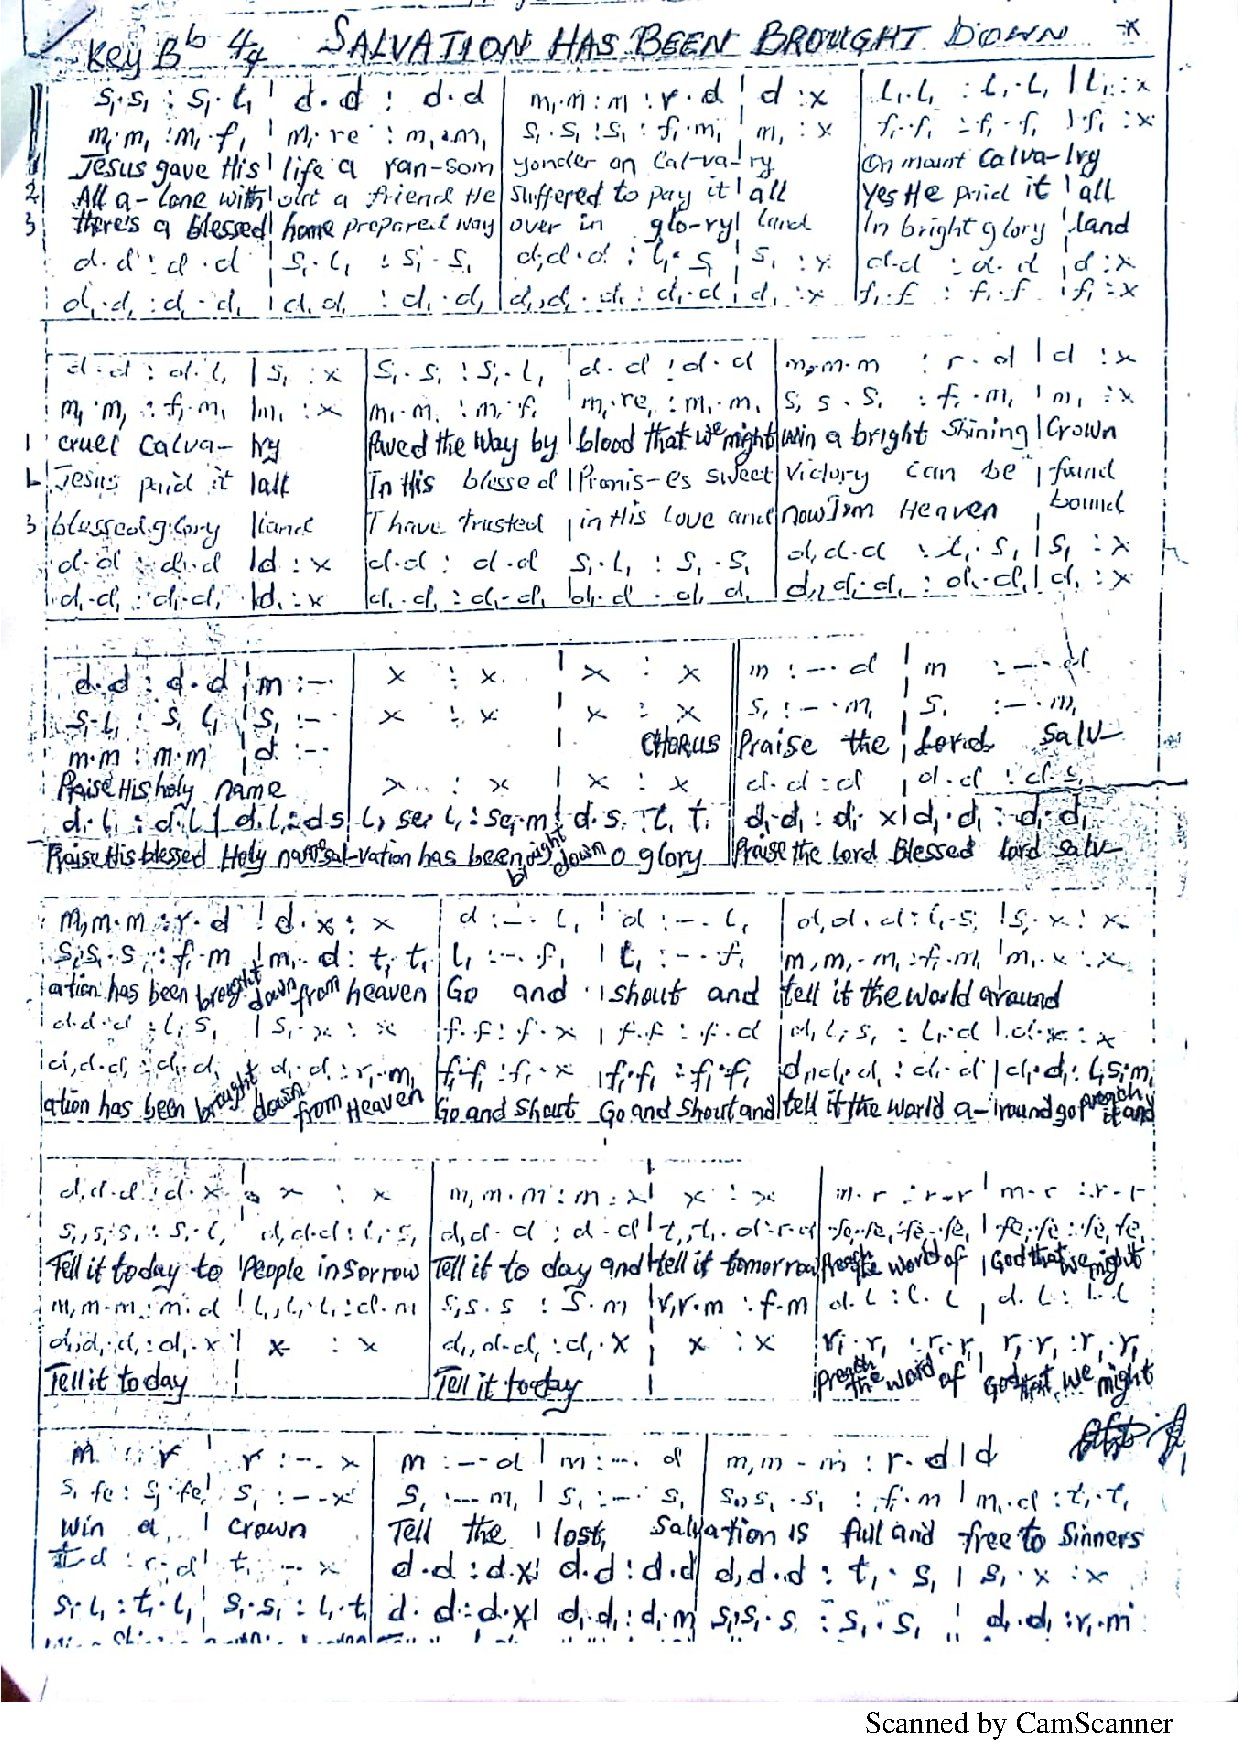 Key Bb 4/4 SALVATION HAS BEEN BROUGHT DOWN
s₁.s₁ : s₁.l₁ | d.d : d.d | m,.m : m : r.d | d : x | l₁.l₁ : l₁.l₁ | l₁ : x
m₁.m₁ : m₁.f₁ | m₁.re : m₁.m₁ | s₁.s₁ : s₁ : f₁.m₁ | m₁ : x | f₁.f₁ : f₁.f₁ | f₁ : x
1 Jesus gave His | life a ran-som | yonder on Cal-va-ry | On mount Calva-|ry
2 All a-lone with|out a friend He | suffered to pay it | all | Yes He paid it | all
3 there's a blessed | home prepared way | over in glo-ry | land | In bright glory | land
d.d : d.d | s₁.l₁ : s₁.s₁ | d,d.d : l₁.s₁ | s₁ : x | d.d : d.d | d : x
d₁.d₁ : d₁.d₁ | d₁.d₁ : d₁.d₁ | d₁,d₁.d₁ : d₁.d₁ | d₁ : x | f₁.f : f₁.f | f₁ : x
d.d : d.l₁ | s₁ : x | s₁.s₁ : s₁.l₁ | d.d : d.d | m,m.m : r.d | d : x
m₁.m₁ : f₁.m₁ | m₁ : x | m₁.m₁ : m₁.f₁ | m₁.re₁ : m₁.m₁ | s₁ s.s₁ : f₁.m₁ | m₁ : x
1 cruel Calva- | ry | Paved the way by | blood that we might | win a bright shining | Crown
Jesus paid it | all | In this blessed | Promis-es sweet | victory can be | found
3 blessed glory | land | I have trusted | in His love and | now I'm Heaven | bound
d.d : d.d | d : x | d.d : d.d | s₁.l₁ : s₁.s₁ | d,d.d : l₁.s₁ | s₁ : x
d₁.d₁ : d₁.d₁ | d₁ : x | d₁.d₁ : d₁.d₁ | d₁.d : d₁ d₁ | d₁,d₁.d₁ : d₁.d₁ | d₁ : x
d.d : d.d | m :- | x : x | x : x | m : -.d | m : -.d
s₁.l₁ : s₁ l₁ | s₁ :- | x : x | x : x | s₁ : -.m₁ | s₁ : -.m₁
m.m : m.m | d :- | CHORUS | Praise the | Lord Salv-
Praise His holy name | x : x | x : x | d.d : d | d.d : d.s₁
d.l₁ : d.l | d.l₁ : d s | l₁ se₁ l₁ : se₁ m | d.s : t₁ t₁ | d₁.d₁ : d₁ x | d₁.d₁ : d₁.d₁
Praise His blessed Holy name sal-vation has been brought down O glory | Praise the Lord Blessed Lord salv-
m,m.m : r.d | d.x : x | d :- l₁ | d :-. l₁ | d,d.d : l₁.s₁ | s₁.x : x
s₁s₁.s : f₁.m | m₁.d : t₁ t₁ | l₁ :-. f₁ | l₁ :-. f₁ | m₁m₁.m₁ : f₁.m₁ | m₁.x : x
ation has been brought down from heaven | Go and | shout and | tell it the world around
d.d.d : l₁ s₁ | s₁.x : x | f.f : f.x | f.f : f.d | d,l₁,s₁ : l₁.d | d.x : x
d,d.d₁ : d₁.d₁ | d₁.d₁ : r₁.m₁ | f₁.f₁ : f₁.x | f₁.f₁ : f₁.f₁ | d,d.d₁ : d₁.d | d₁.d₁ : l₁,s₁.m₁
ation has been brought down from Heaven | Go and shout | Go and shout and | tell it the world a-|round go preach it and
d,d.d : d.x | x : x | m,m.m : m.x | x : x | m.r : r.r | m.r : r.r
s₁,s₁.s₁ : s₁.l₁ | d,d.d : l₁.s₁ | d,d.d : d.d | t₁,t₁.d : r.d | fe₁.fe₁ : fe₁.fe₁ | fe₁.fe₁ : fe₁ fe₁
Tell it today to | People in sorrow | Tell it to day and | tell it tomorrow | Preach the word of | God that we might
m,m.m : m.d | l₁,l₁.l₁ : d.m | s,s.s : s.m | r,r.m : f.m | d.l : l.l | d.l : l.l
d₁,d₁.d₁ : d₁.x | x : x | d₁,d.d₁ : d₁.x | x : x | r₁.r₁ : r₁.r₁ | r₁.r₁ : r₁.r₁
Tell it to day | Tell it today | preach the word of | God that we might
m : r | r :-. x | m :-.d | m :-. d | m,m.m : r.d | d
s₁ fe : s₁.fe₁ | s₁ :-.x | s₁ :-.m₁ | s₁ :-. s₁ | s₁,s₁.s₁ : f₁.m | m₁.d : t₁.t₁
win a | crown | Tell the | lost, Salvation is full and free to Sinners
d : r.d | t₁ :-. x | d.d : d.x | d.d : d.d | d,d.d : t₁.s₁ | s₁.x : x
s₁.l₁ : t₁.l₁ | s₁.s₁ : l₁.t₁ | d.d : d.x | d₁.d₁ : d₁.m | s₁s₁.s : s₁.s₁ | d₁.d₁ : r₁.m
Scanned by CamScanner